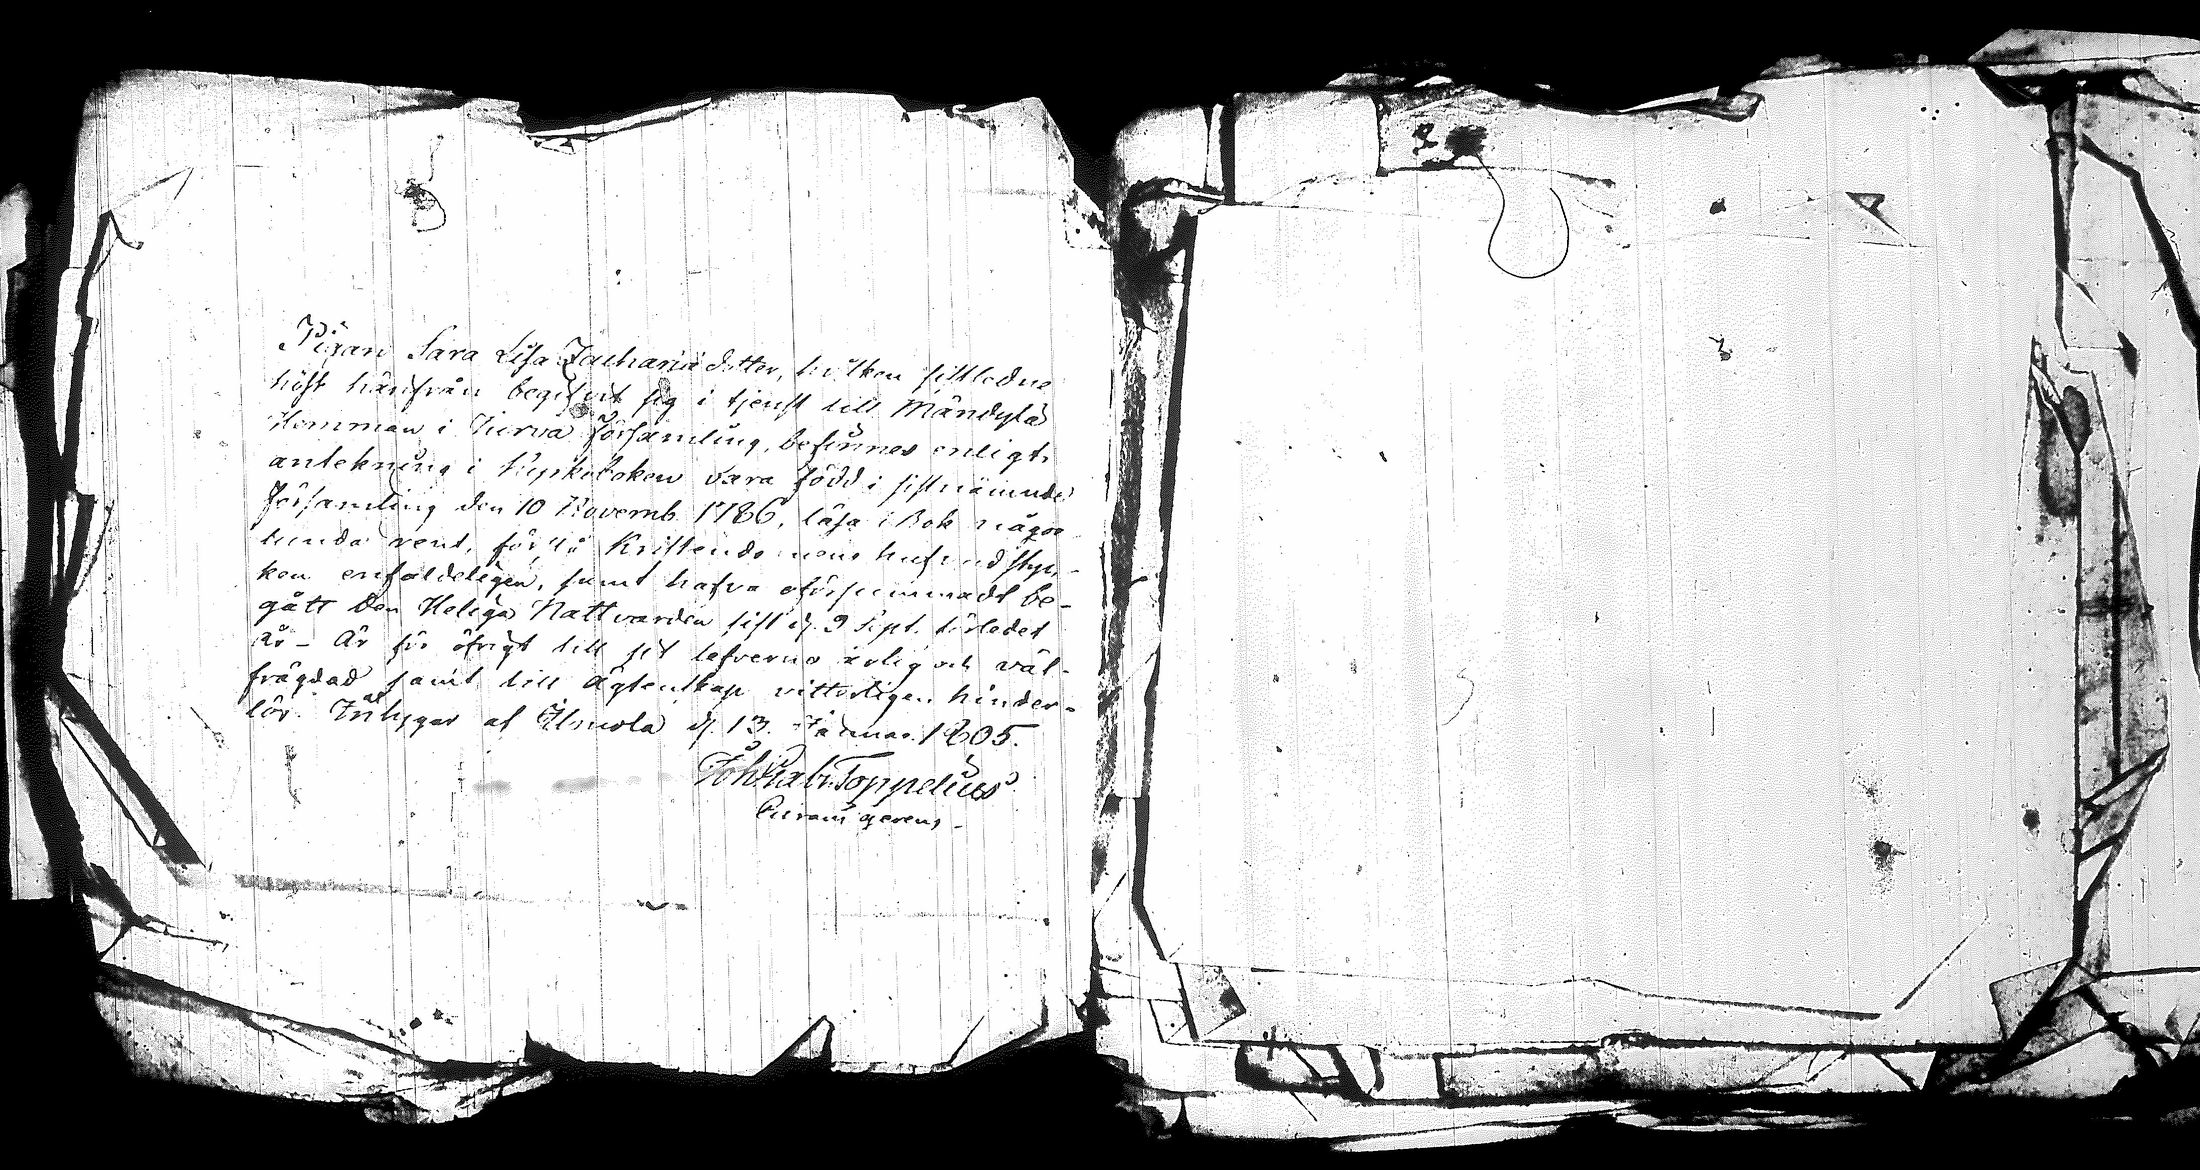 Pigan Sara Lisa Zachariädotter, hvilken sistledne
höst härifrån begifvit sig i tjenst till Mändylä
Hemman i Jurva Församling, befinnes enligt
antekning i Kyrkoboken vara född i sistnämnde
Församling den 10 Novemb. 1786, läsa i Bok någor-
lunda rent, förstå Kristendomens hufvudstyc-
ken enfaldeligen, samt hafva oförsummadt be-
gått Den Heliga Nattvarden sist d. 9 Sept. förledet
år – Är för öfrigt till sit lefverne ärlig och väl-
frägdad samt till ägtenskap vitterligen hinder-
lös. Intygar af Ilmola d. 13. Januar. 1805.
Joh. Gabr. Toppelius
Curam gerens –